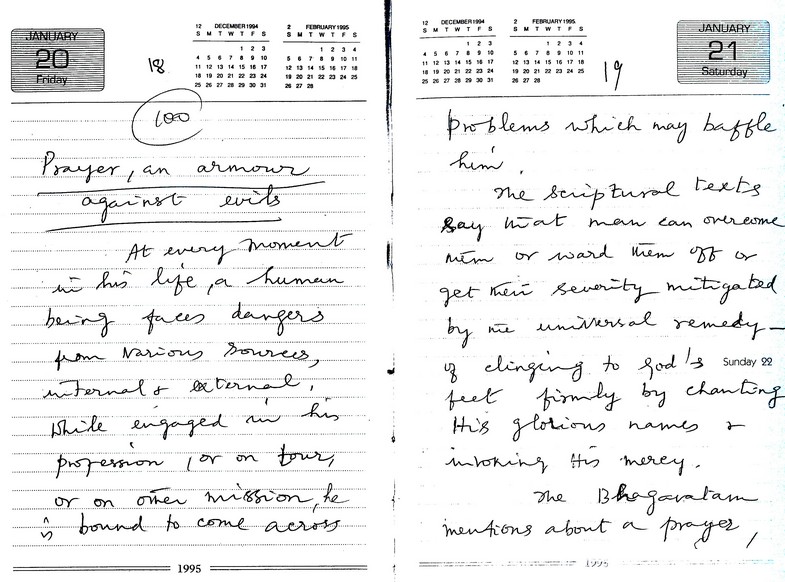 JANUARY
20
Friday
18
12 DECEMBER 1994
S M T W T F S
1 2 3
4 5 6 7 8 9 10
11 12 13 14 15 16 17
18 19 20 21 22 23 24
25 26 27 28 29 30 31
2 FEBRUARY 1995
S M T W T F S
1 2 3 4
5 6 7 8 9 10 11
12 13 14 15 16 17 18
19 20 21 22 23 24 25
26 27 28
100
Prayer, an armour
against evils
At every moment
in his life, a human
being faces dangers
from various sources,
internal & external.
While engaged in his
profession, or on tour,
or on other mission, he
is bound to come across
1995
12 DECEMBER 1994
S M T W T F S
1 2 3
4 5 6 7 8 9 10
11 12 13 14 15 16 17
18 19 20 21 22 23 24
25 26 27 28 29 30 31
2 FEBRUARY 1995
S M T W T F S
1 2 3 4
5 6 7 8 9 10 11
12 13 14 15 16 17 18
19 20 21 22 23 24 25
26 27 28
19
JANUARY
21
Saturday
problems which may baffle
him.
The scriptural texts
say that man can overcome
them or ward them off or
get their severity mitigated
by the universal remedy—
of clinging to God's
Sunday 22
feet firmly by chanting
His glorious names &
invoking His mercy.
The Bhagavatam
mentions about a prayer,
1995